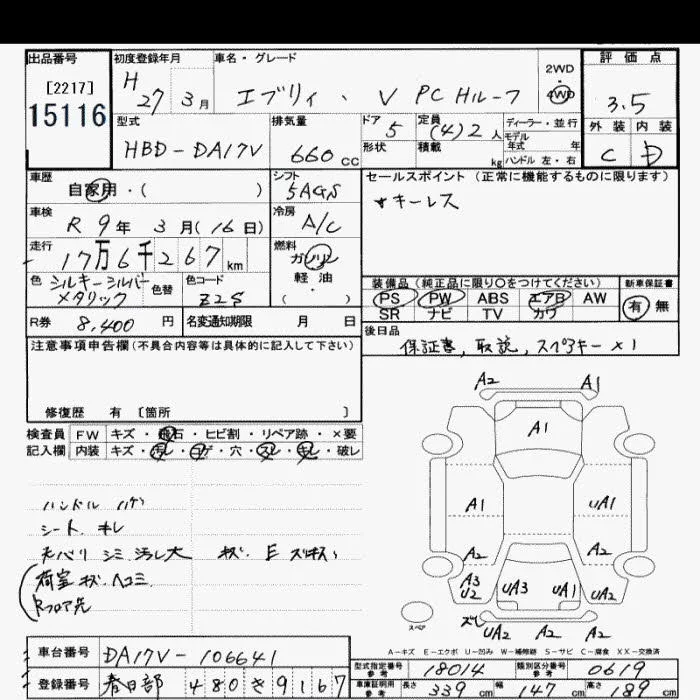 出品番号
[2217]
15116
初度登録年月
H 27 3月
車名・グレード
エブリィ、V PC Hルーフ
2WD
4WD
評価点
3.5
外装 内装
C D
型式
HBD-DA17V
排気量
660cc
ドア
5
形状
定員
(4)2人
積載
kg
ディーラー・並行
モデル年式 年
ハンドル 左・右
車歴
自家用・( )
シフト
5AGS
車検
R9年 3月(16日)
冷房
A/C
走行
17万6千267km
燃料
ガソリン
軽・油
( )
色
シルキーシルバーメタリック
色替
色コード
Z2S
R券 8,400円
名変通知期限 月 日
セールスポイント (正常に機能するものに限ります)
★キーレス
装備品 (純正品に限り〇をつけてください)
PS PW ABS エアB AW
SR ナビ TV カワ
新車保証書
有 無
後日品
保証書, 取説, スペアキー×1
注意事項申告欄(不具合内容等は具体的に記入して下さい)
修復歴 有 [箇所 ]
検査員記入欄
FW キズ・飛石・ヒビ割・リペア跡・×要
内装 キズ・汚レ・コゲ・穴・スレ・キレ・破レ
ハンドル ハゲ
シート キレ
天バリ シミ 汚レ大
荷室 キズ ヘコミ
A2 A1
A1
A1 UA1
A2 A2
A3 U2 UA3 UA1 UA2
ズレ
UA2 A2 UA2
スペア
A-キズ E-エクボ U-凹み W-補修跡 S-サビ C-腐食 XX-交換済
車台番号 DA17V-106641
登録番号 春日部 480 き 9167
型式指定番号 参考 18014
類別区分番号 参考 0619
車庫証明用 参考 長さ 339cm 幅 147cm 高さ 189cm